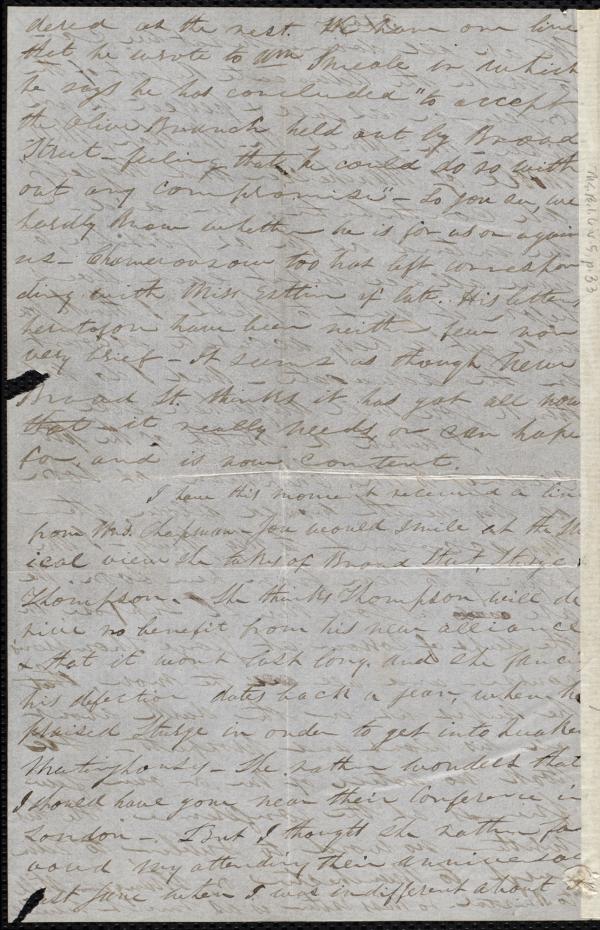 dered at the rest. We have one line
that he wrote to Wm Smeale in which
he says he has concluded "to accept
the Olive Branch held out by Broad
Street - feeling that he could do so with
out any compromise" - So you see, we
hardly know whether he is for us or again
us - Chamerovzow too has left correspon
ding with Miss Estlin of late. His letters
heretofore have been neither few nor
very brief - It seems as though New
Broad St. thinks it has got all now
that it really needs, or can hope
for, and is now content.
I have this moment received a line
from Mrs. Chapman - You would smile at the
ical view she takes of Broad Street, Sturge
Thompson. - She thinks Thompson will de
rive no benefit from his new alliance
& that it wont last long. and she fanci
his defection dates back a year, when he
praised Sturge in order to get into Quaker
Meetinghouses - She rather wonders that
I should have gone near their Conference in
London -. But I thought she rather fa
vored my attending their anniversar
last June when I was indifferent about